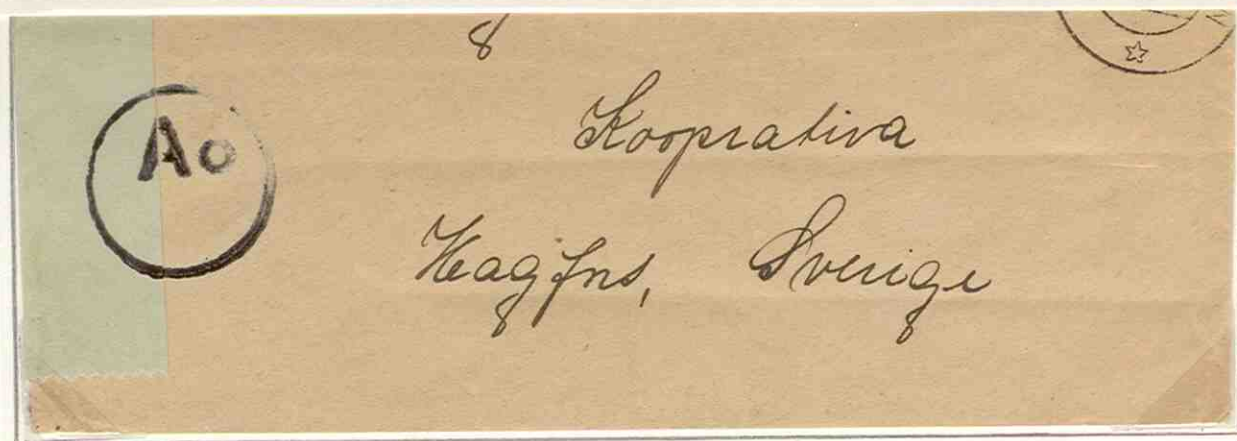 8
Ao
Kooprativa
Hagfns, Sverige